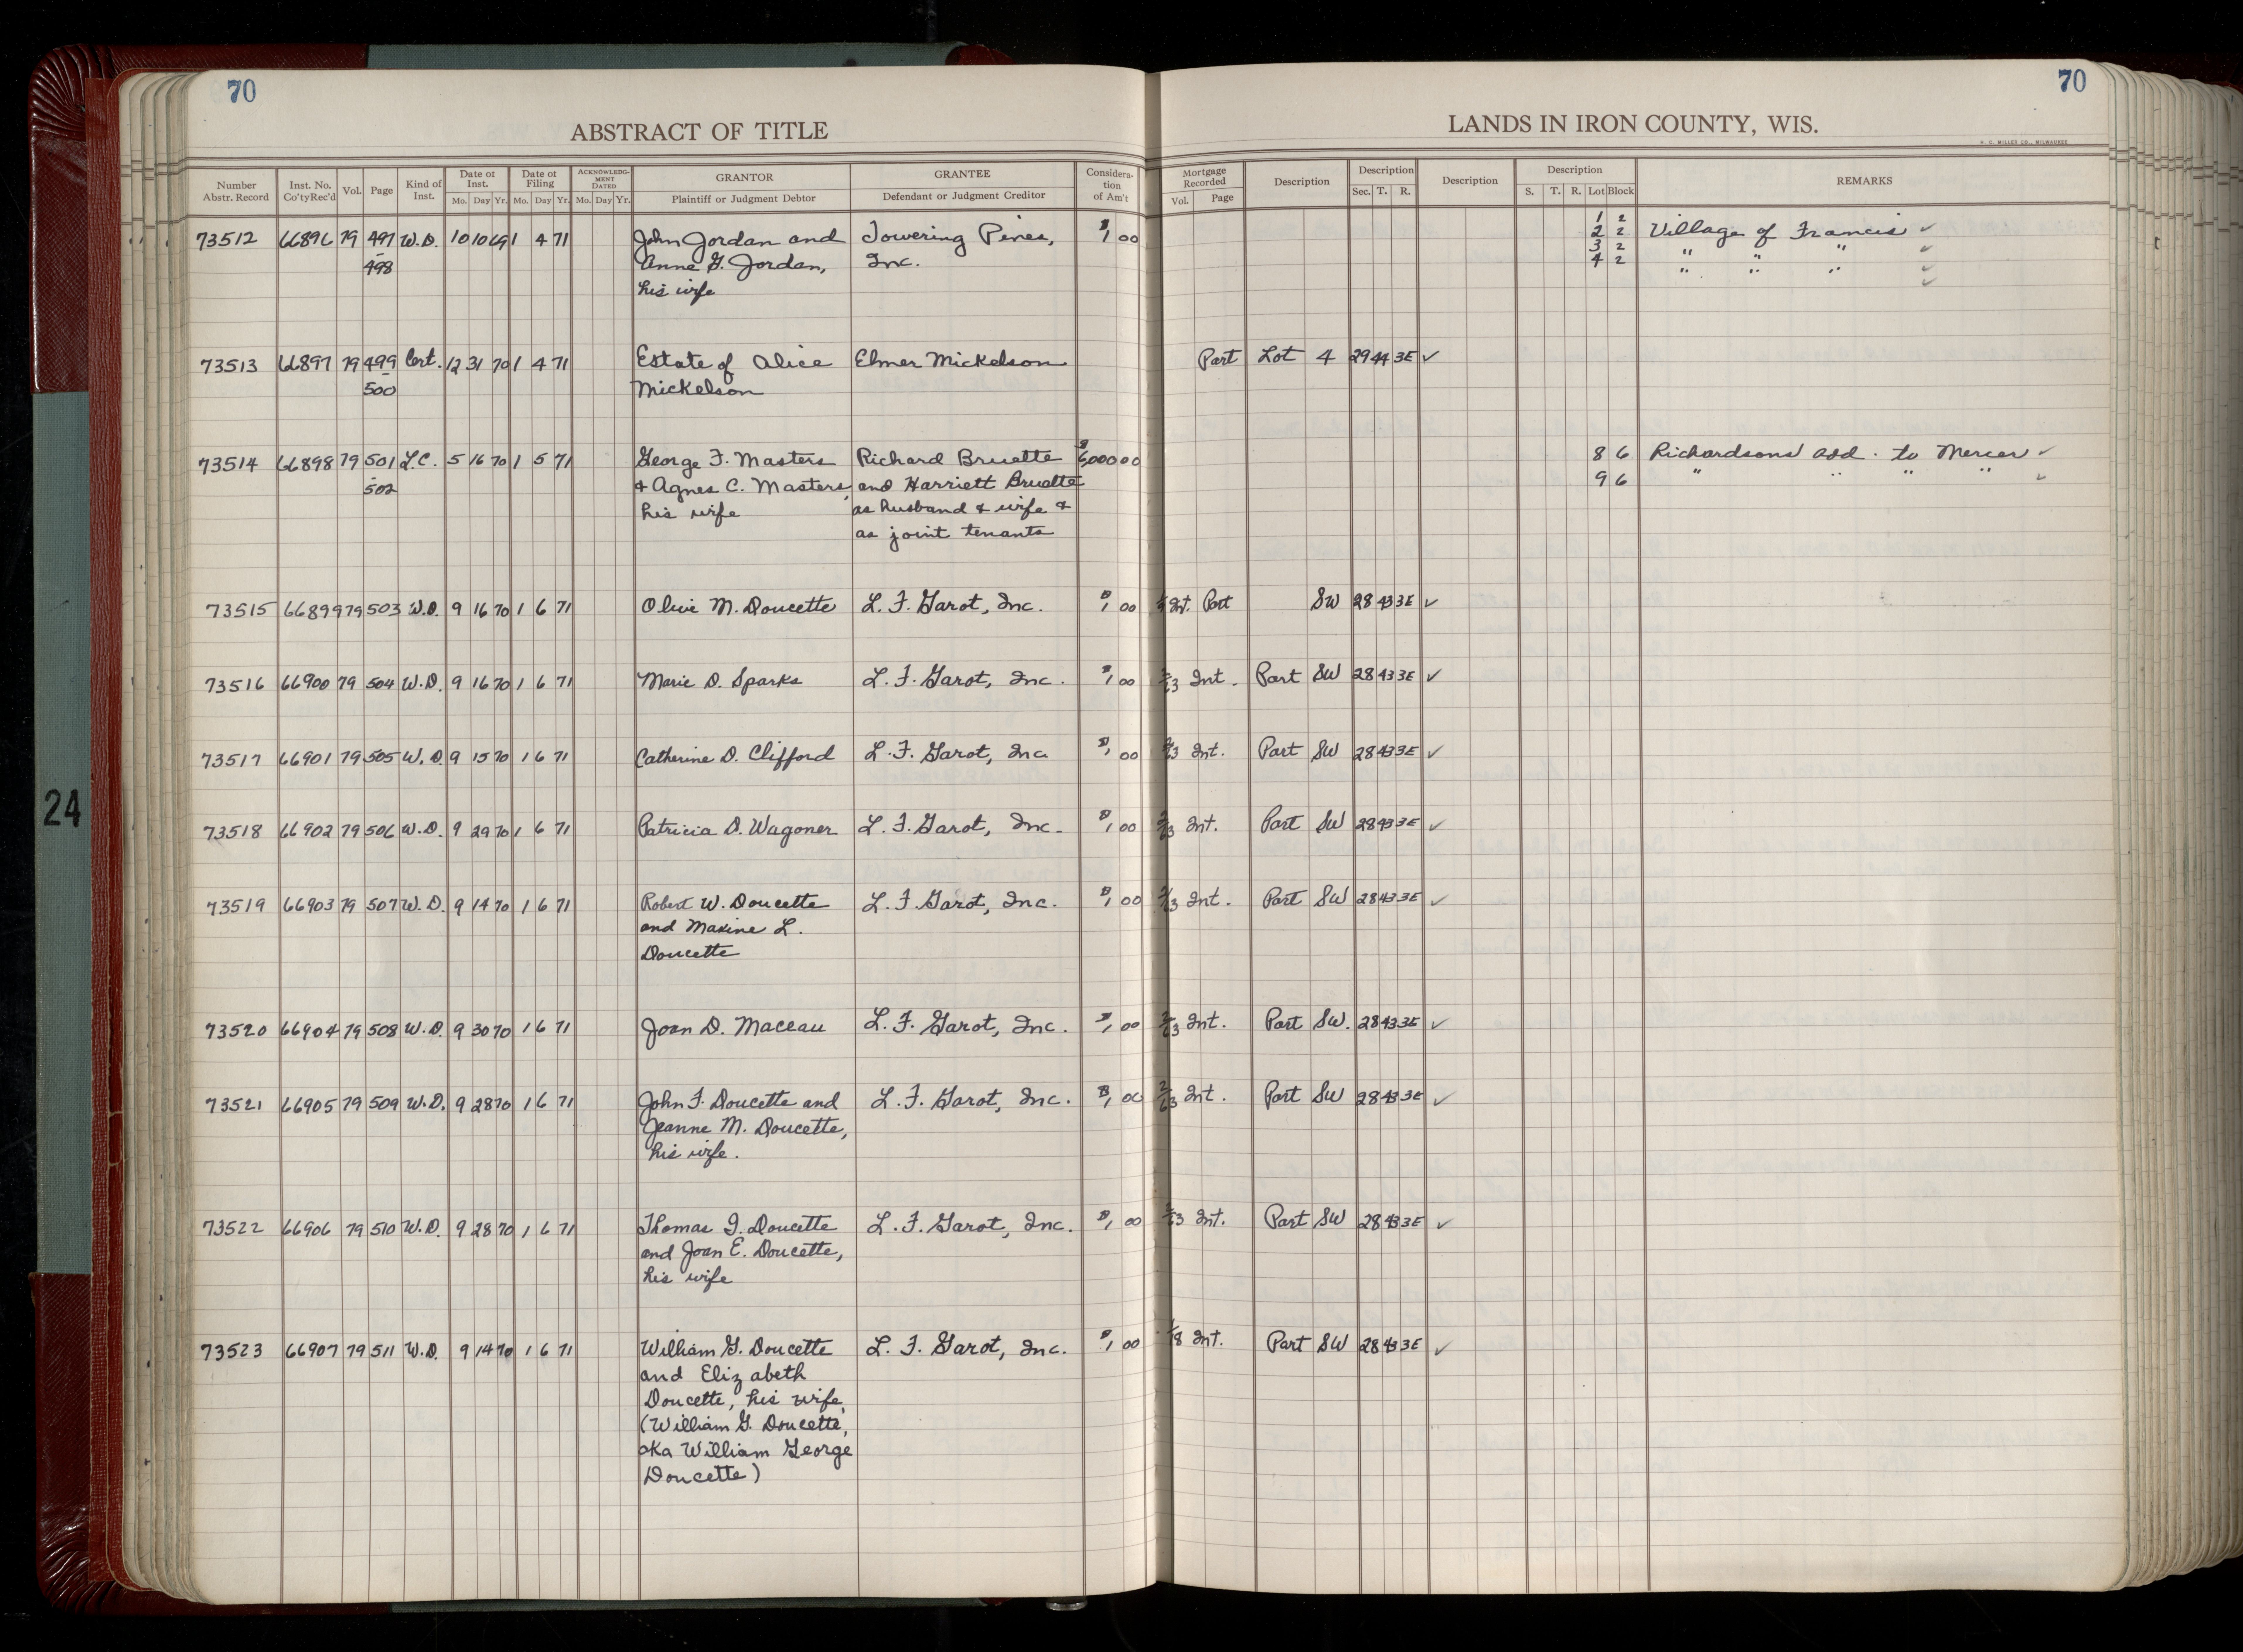 70
70
ABSTRACT OF TITLE
LANDS IN IRON COUNTY, WIS.
H. C. MILLER CO., MILWAUKEE
Number Abstr. Record | Inst. No. Co'ty Rec'd | Vol. | Page | Kind of Inst. | Date of Inst. Mo. Day Yr. | Date of Filing Mo. Day Yr. | ACKNOWLEDGMENT DATED Mo. Day Yr. | GRANTOR Plaintiff or Judgment Debtor | GRANTEE Defendant or Judgment Creditor | Consideration of Am't | Mortgage Recorded Vol. Page | Description | Description Sec. T. R. | Description | Description S. T. R. Lot Block | REMARKS
73512 66896 79 497 W.D. 10 10 69 1 4 71 John Jordan and Towering Pines, $1 00 1 2
2 2 Village of Francis ✓
498 Anne G. Jordan, Inc. 3 2 " " ✓
his wife 4 2 " " " ✓
✓
73513 66897 79 499 Cert. 12 31 70 1 4 71 Estate of Alice Elmer Mickelson Part Lot 4 29 44 3E ✓
500 Mickelson
73514 66898 79 501 L.C. 5 16 70 1 5 71 George F. Masters Richard Bruette $6,000 00 8 6 Richardsons add. to Mercer ✓
502 + Agnes C. Masters, and Harriett Bruette 9 6 " " " " ✓
his wife as husband & wife &
as joint tenants
73515 66899 79 503 W.D. 9 16 70 1 6 71 Olive M. Doucette L. F. Garot, Inc. $1 00 Int. Part SW 28 43 3E ✓
73516 66900 79 504 W.D. 9 16 70 1 6 71 Marie D. Sparks L. F. Garot, Inc. $1 00 Int. Part SW 28 43 3E ✓
73517 66901 79 505 W.D. 9 15 70 1 6 71 Catherine D. Clifford L. F. Garot, Inc $1 00 Int. Part SW 28 43 3E ✓
73518 66902 79 506 W.D. 9 29 70 1 6 71 Patricia D. Wagoner L. F. Garot, Inc. $1 00 Int. Part SW 28 43 3E ✓
73519 66903 79 507 W.D. 9 14 70 1 6 71 Robert W. Doucette L. F. Garot, Inc. $1 00 Int. Part SW 28 43 3E ✓
and Maxine L.
Doucette
73520 66904 79 508 W.D. 9 30 70 1 6 71 Joan D. Maceau L. F. Garot, Inc. $1 00 Int. Part SW. 28 43 3E ✓
73521 66905 79 509 W.D. 9 28 70 1 6 71 John F. Doucette and L. F. Garot, Inc. $1 00 Int. Part SW 28 43 3E ✓
Jeanne M. Doucette,
his wife.
73522 66906 79 510 W.D. 9 28 70 1 6 71 Thomas J. Doucette L. F. Garot, Inc. $1 00 Int. Part SW 28 43 3E ✓
and Joan E. Doucette,
his wife
73523 66907 79 511 W.D. 9 14 70 1 6 71 William G. Doucette L. F. Garot, Inc. $1 00 Int. Part SW 28 43 3E ✓
and Elizabeth
Doucette, his wife,
(William G. Doucette,
aka William George
Doucette)
24